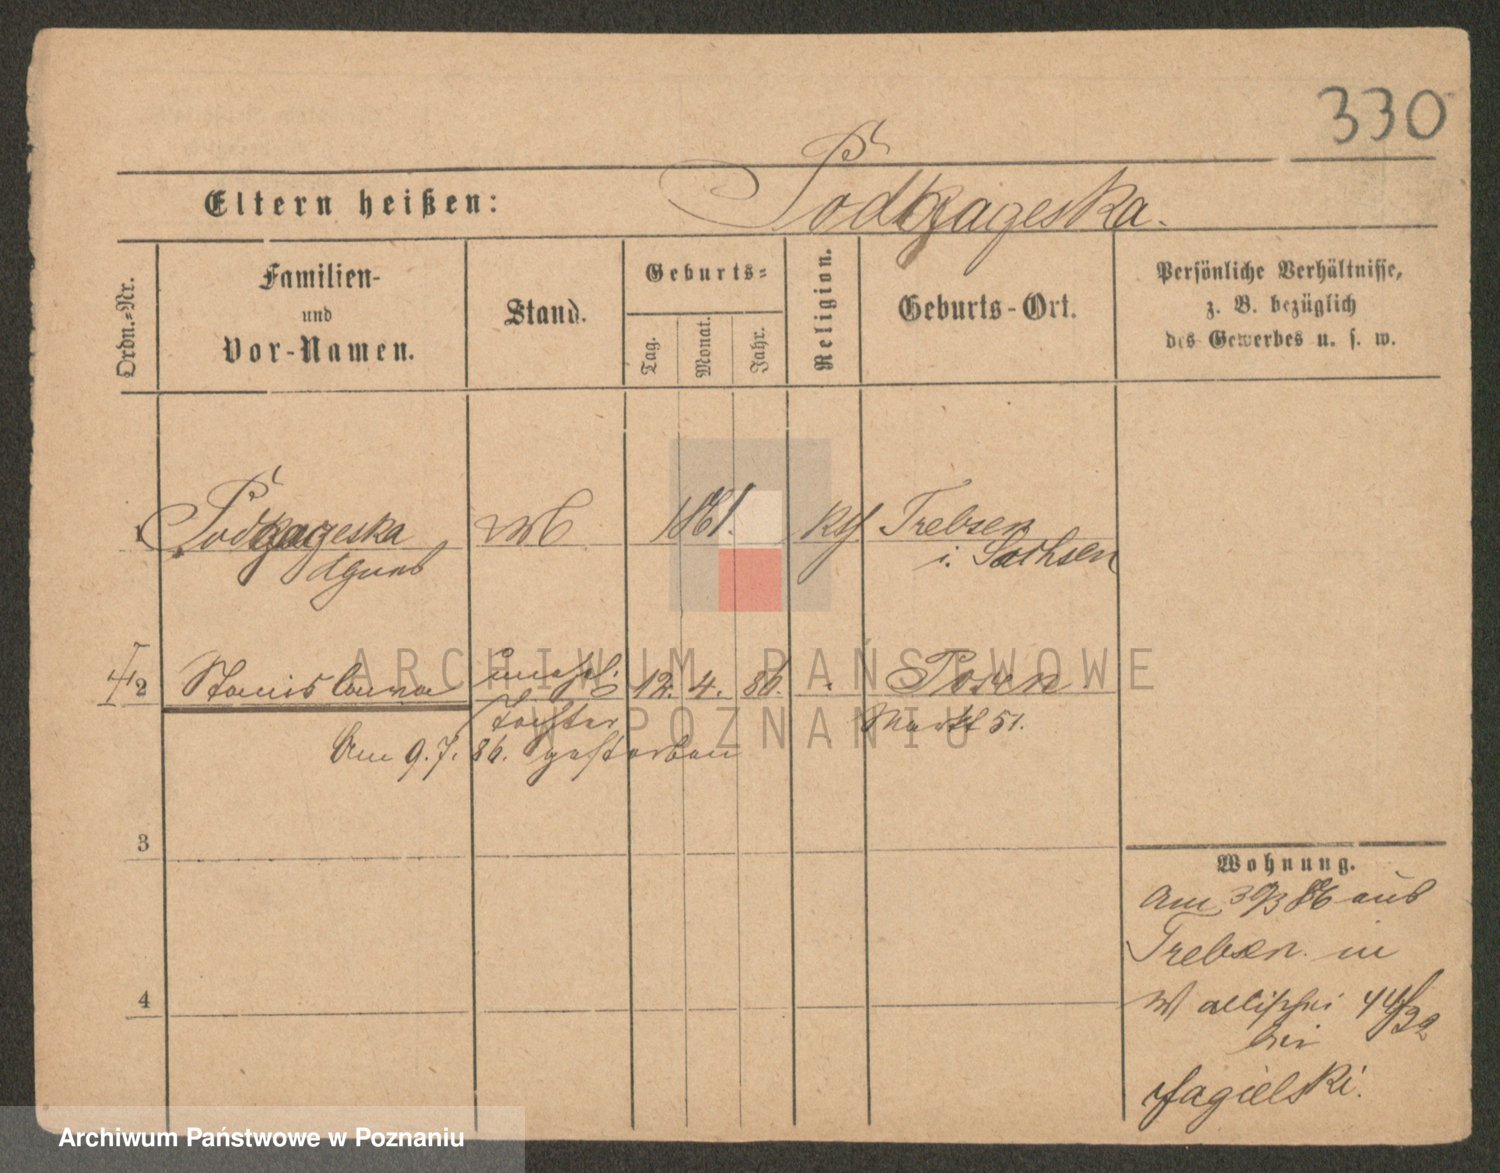 330
Eltern heißen: Podkzageska.
Ordn.-Nr.
Familien-
und
Vor-Namen.
Stand.
Geburts-
Tag.
Monat.
Jahr.
Religion.
Geburts-Ort.
Persönliche Verhältnisse,
z. B. bezüglich
des Gewerbes u. s. w.
1 1861. Trebsen
Agnes i. Sachsen
2 Stanislawa unehl. 12. 4. 86. Posen
Tochter Markt 51.
Am 9.7.86. gestorben
3
4
Wohnung.
Am 30/3 86 aus
Trebsen in
Wallischei 44/
bei
Jagielski.
ARCHIWUM PAŃSTWOWE
W POZNANIU
Archiwum Państwowe w Poznaniu